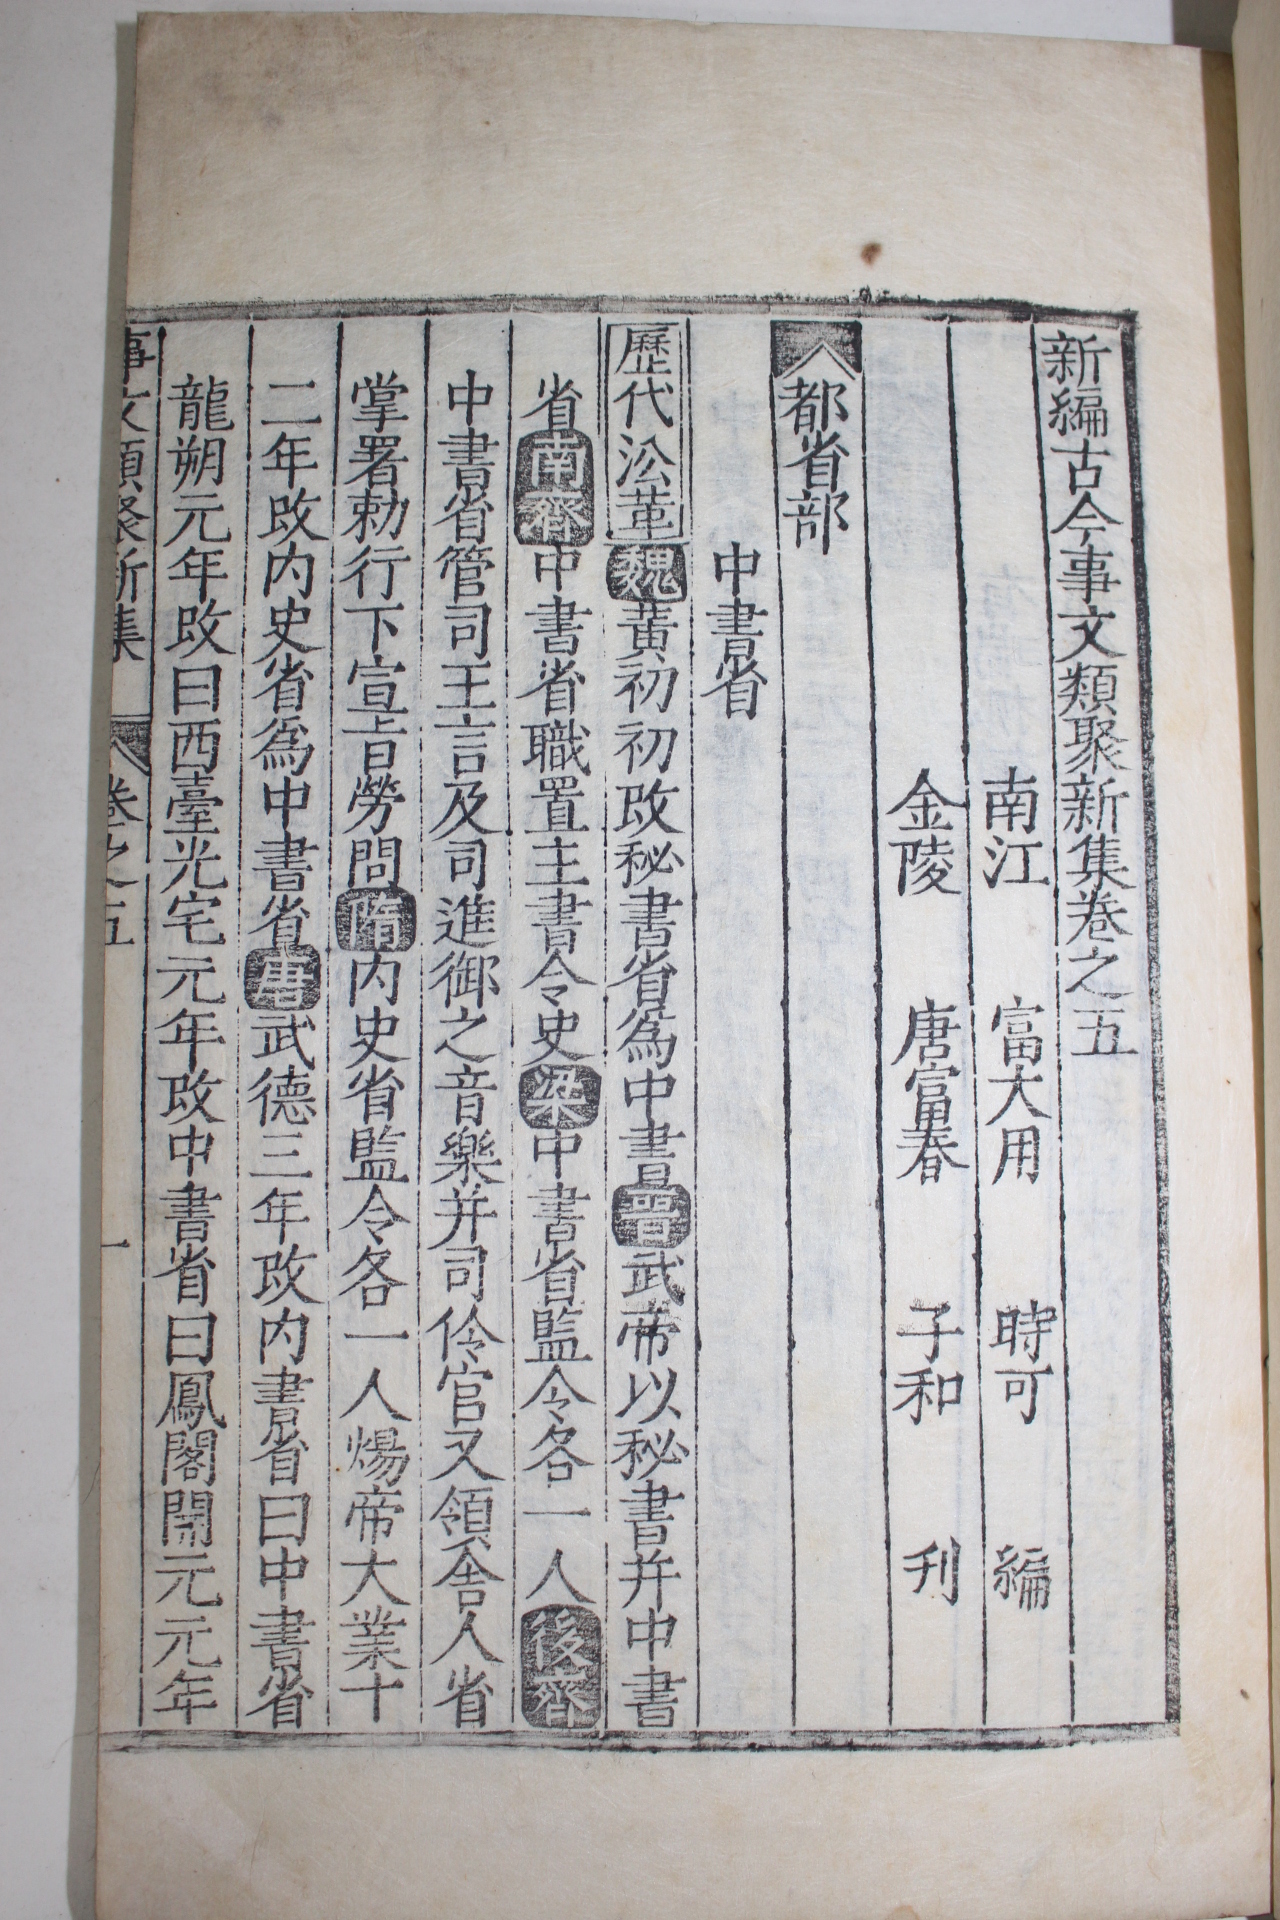 新編古今事文類聚新集卷之五
南江 富大用 時可 編
金陵 唐富春 子和 刋
都省部
中書省
歷代沿革魏黃初初改秘書省為中書晉武帝以秘書并中書
省南齊中書省職置主書令史梁中書省監令各一人後齊
中書省管司王言及司進御之音樂并司伶官又領舍人省
掌署勅行下宣旨勞問隋內史省監令各一人煬帝大業十
二年改内史省為中書省唐武德三年改内書省曰中書省
龍朔元年改曰西臺光宅元年改中書省曰鳳閣開元元年
事文類聚新集 卷之五 一